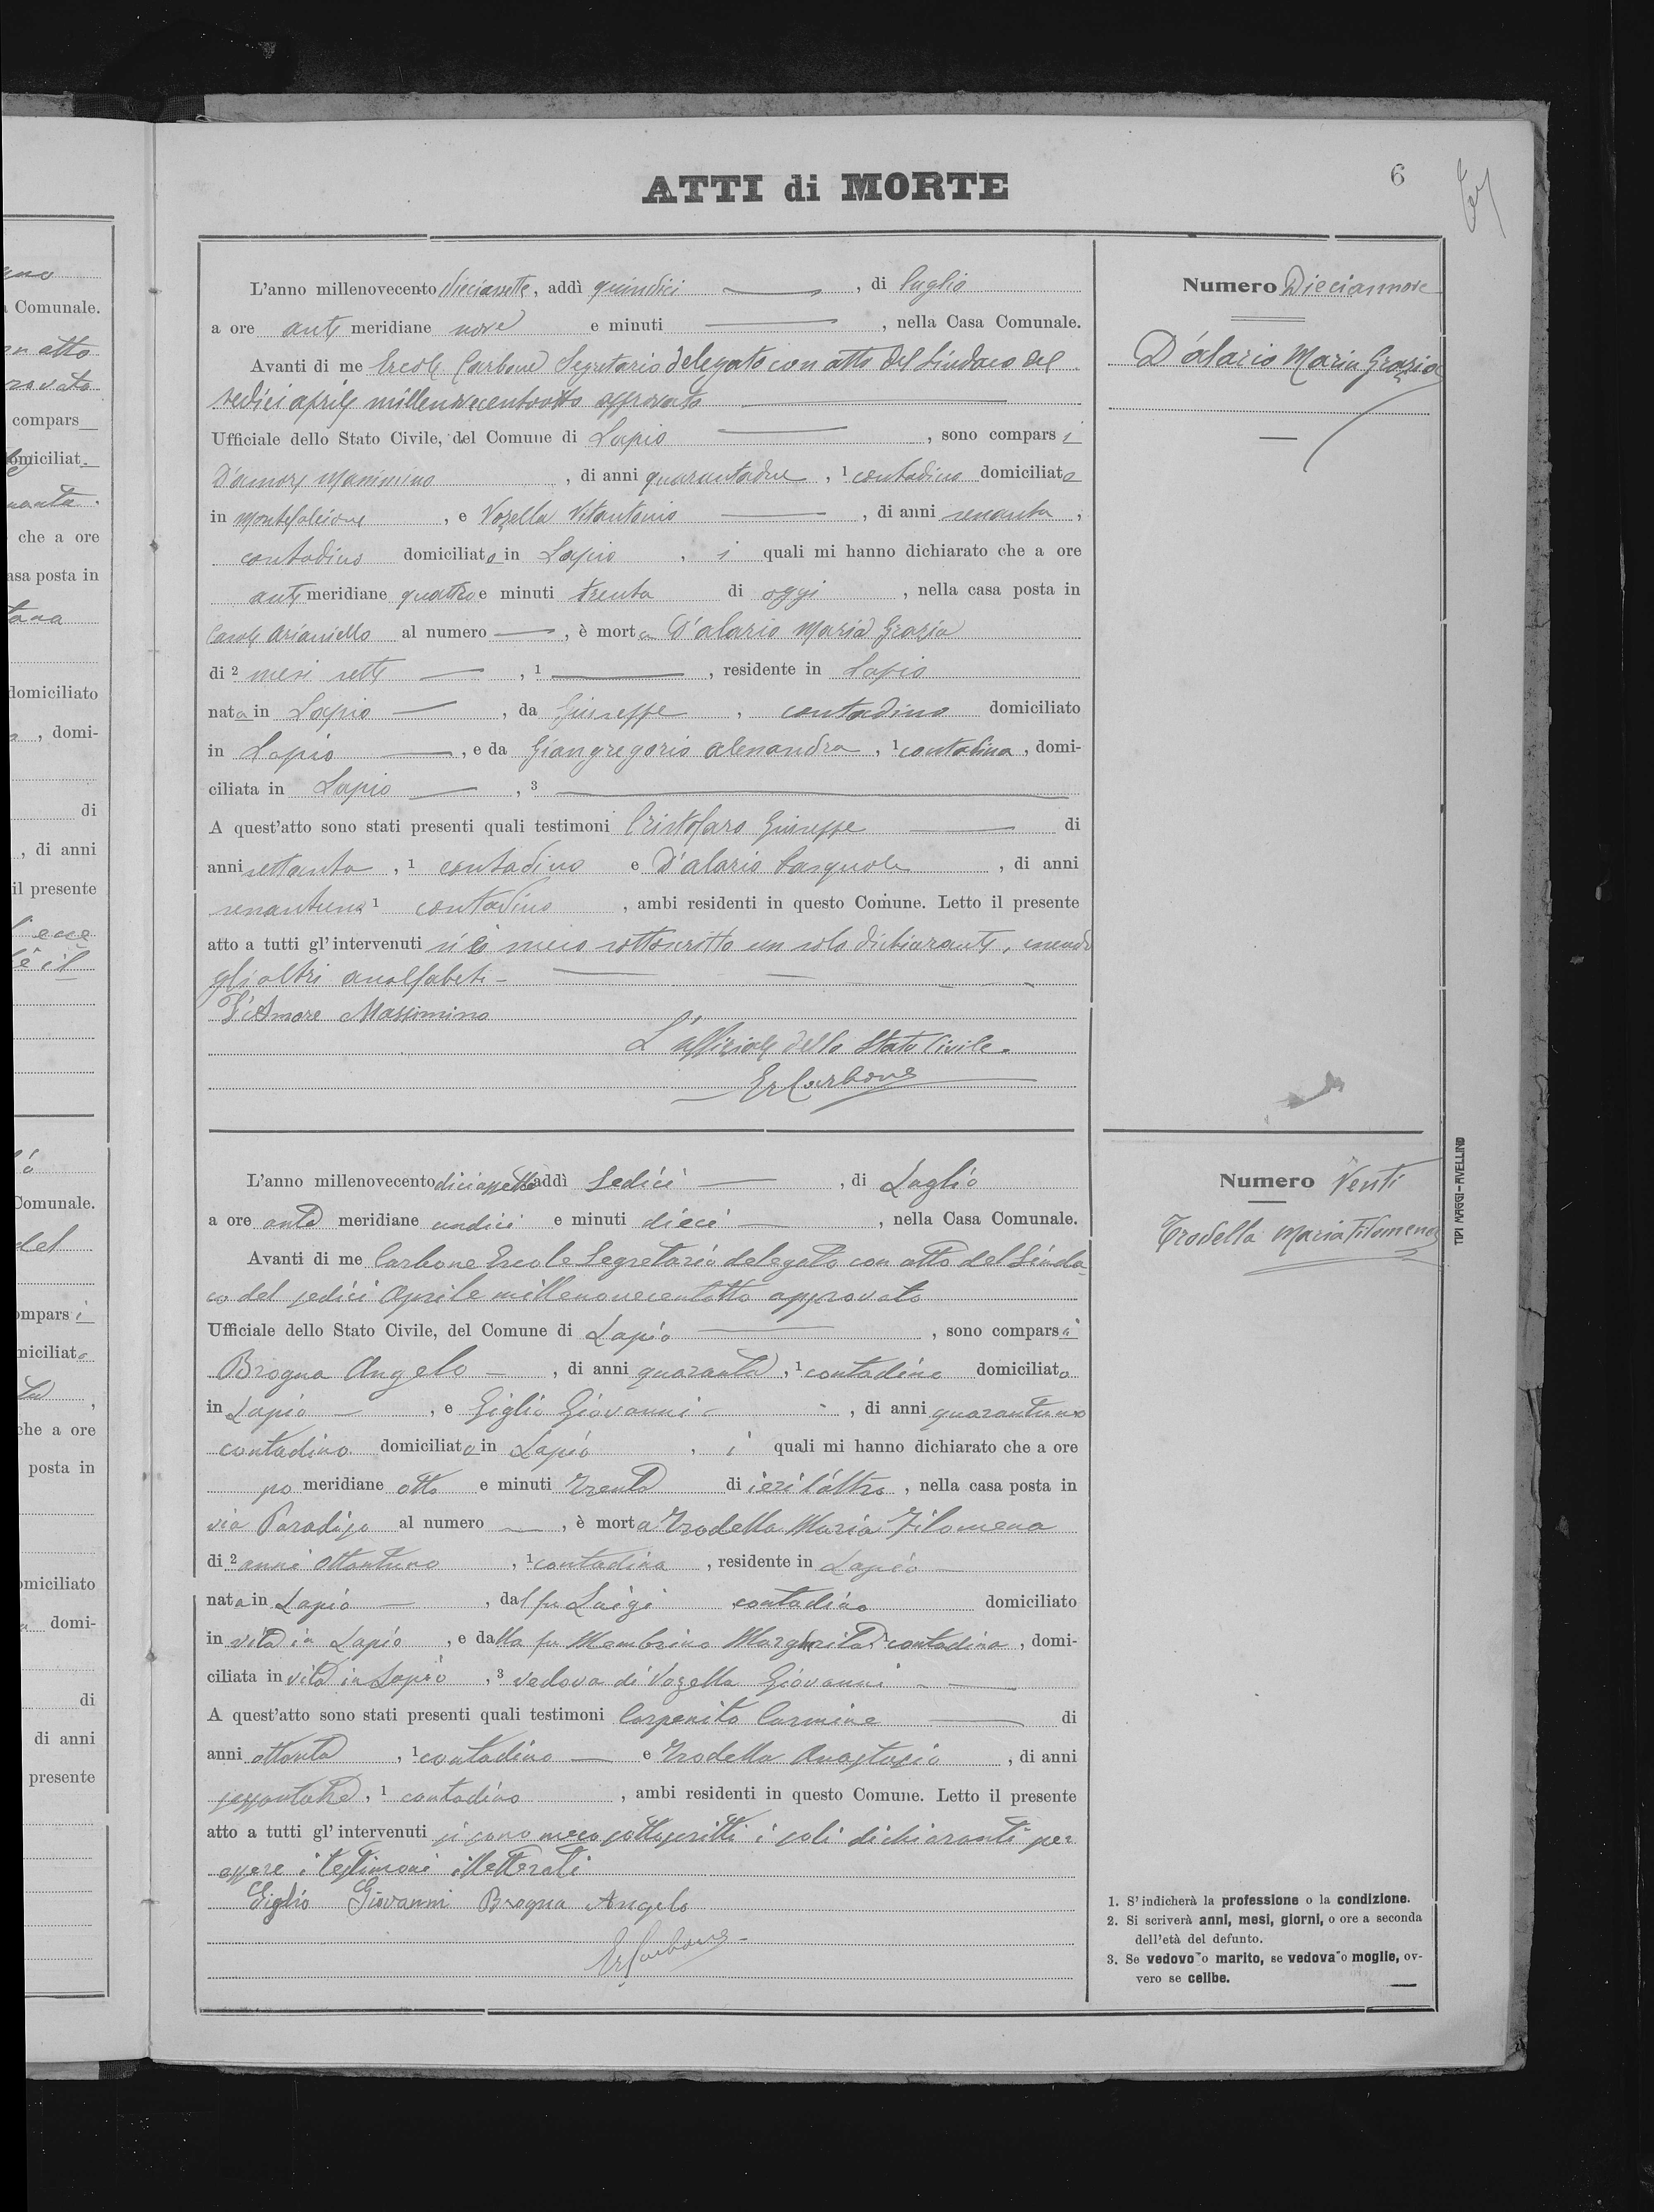 ATTI di MORTE
6
L'anno millenovecento diciassette, addì quindici, di luglio
a ore anti meridiane nove e minuti, nella Casa Comunale.
Avanti di me Ercole Carbone Segretario delegato con atto del Sindaco del
sedici aprile millenovecentootto approvato
Ufficiale dello Stato Civile, del Comune di Lapio, sono comparsi
D'amore Massimino, di anni quarantadue, 1 contadino domiciliato
in Montefalcione, e Vozella Vitantonio, di anni sessanta,
contadino domiciliato in Lapio, i quali mi hanno dichiarato che a ore
anti meridiane quattro e minuti trenta di oggi, nella casa posta in
Casale Arianiello al numero, è morta D'alario Maria Grazia
di 2 mesi sette, 1, residente in Lapio
nata in Lapio, da Giuseppe, contadino domiciliato
in Lapio, e da Giangregorio Alessandra, 1 contadina, domi-
ciliata in Lapio, 3
A quest'atto sono stati presenti quali testimoni Cristofaro Giuseppe di
anni settanta, 1 contadino e D'alario Pasquale, di anni
sessantuno 1 contadino, ambi residenti in questo Comune. Letto il presente
atto a tutti gl'intervenuti si è meco sottoscritto un solo dichiarante, essendo
gli altri analfabeti
D'Amore Massimino
L'uffiziale dello Stato Civile.
Er Carbone
Numero Diciannove
D'alario Maria Grazia
L'anno millenovecento diciassette addì Sedici, di Luglio
a ore anti meridiane undici e minuti dieci, nella Casa Comunale.
Avanti di me Carbone Ercole Segretario delegato con atto del Sinda-
co del sedici Aprile millenovecentotto approvato
Ufficiale dello Stato Civile, del Comune di Lapio, sono comparsi
Brogna Angelo, di anni quaranta, 1 contadino domiciliato
in Lapio, e Giglio Giovanni, di anni quarantuno
contadino domiciliato in Lapio, i quali mi hanno dichiarato che a ore
po meridiane otto e minuti trenta di ieri l'altro, nella casa posta in
via Paradiso al numero, è morta Trodella Maria Filomena
di 2 anni ottantuno, 1 contadina, residente in Lapio
nata in Lapio, dal fu Luigi contadino domiciliato
in vita in Lapio, e dalla fu Membrino Margherita 1 contadina, domi-
ciliata in vita in Lapio, 3 vedova di Vozella Giovanni
A quest'atto sono stati presenti quali testimoni Carpenito Carmine di
anni ottanta, 1 contadino e Trodella Anastasio, di anni
sessantatre, 1 contadino, ambi residenti in questo Comune. Letto il presente
atto a tutti gl'intervenuti si sono meco sottoscritti i soli dichiaranti per
essere i testimoni illetterati
Giglio Giovanni Brogna Angelo
Er Carbone
Numero Venti
Trodella Maria Filomena
1. S'indicherà la professione o la condizione.
2. Si scriverà anni, mesi, giorni, o ore a seconda
dell'età del defunto.
3. Se vedovo o marito, se vedova o moglie, ov-
vero se celibe.
TIPI MAGGI-AVELLINO
Comunale.
compars
domiciliat
che a ore
casa posta in
domiciliato
, domi-
di
, di anni
il presente
Comunale.
compars i
miciliato
che a ore
posta in
omiciliato
domi-
di
di anni
presente